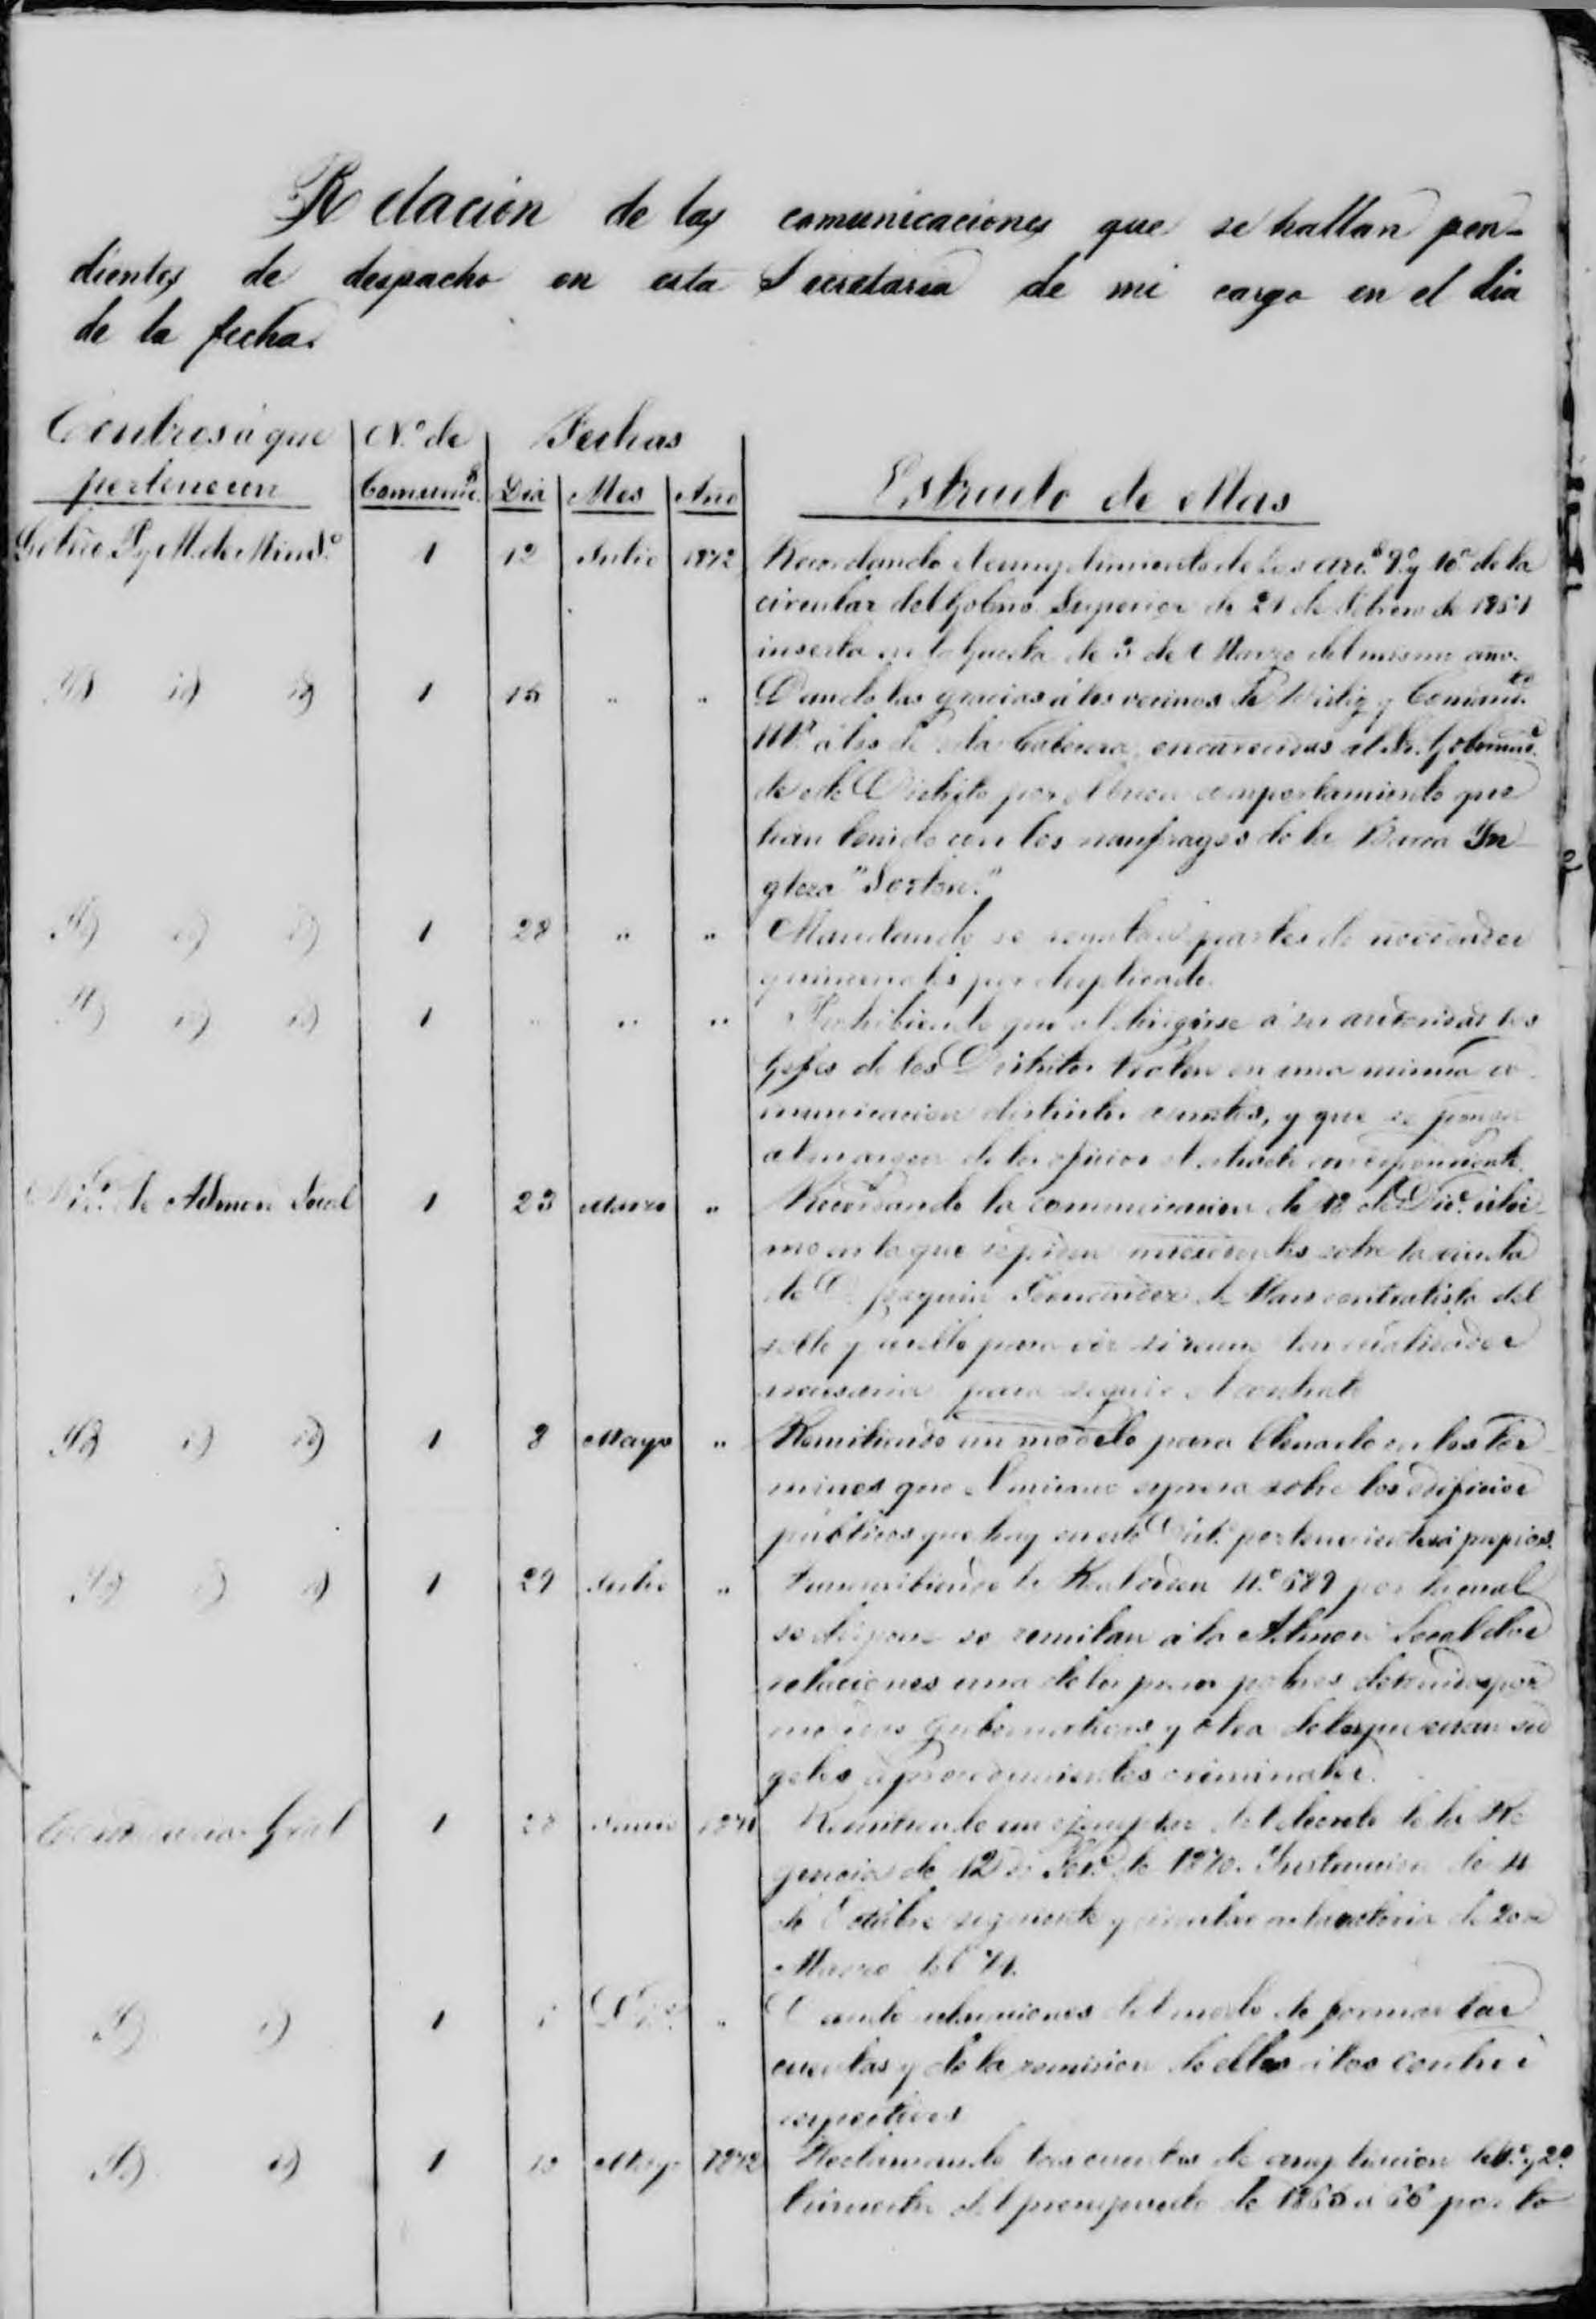 Relacion de las comunicaciones que se hallan pen-
dientes de despacho en esta Secretaria de mi cargo en el dia
de la fecha.
Centros á que pertenecen | N.º de Comunic.s | Fechas Dia Mes Año | Estracto de ellas
Gobno P. y M. de Mind.º 1 12 Julio 1872 Recordando el cumplimiento de los art.s 9.º y 10.º de la
circular del Gobno Superior de 21 de Febrero de 1851
inserta en la Gaceta de 3 de Marzo del mismo año.
Id id id 1 15 " " Dando las gracias á los vecinos de y
á los de esta Cabecera, al Sr. Gobernad.r
de este Distrito por el buen comportamiento que
han tenido con los naufragos de la Barca In-
glesa
Id id id 1 28 " " Mandando se remitan partes de novedades
quincenales por duplicado.
Id id id 1 " " " Prohibiendo que al dirigirse á su autoridad los
Gefes de los Distritos traten en una misma co-
municacion distintos asuntos, y que se ponga
al margen de los oficios el estracto correspondiente.
de Admon Local 1 23 Marzo " Recordando la comunicacion de 18 de Dic.e ulti-
mo en la que se piden antecedentes sobre la cuenta
de D. Joaquin Fernandez de contratista del
sello y para ver si reune las cualidades
necesarias para seguir el contrato
Id id id 1 8 Mayo " Remitiendo un modelo para llenarlo en los ter-
minos que el mismo espresa sobre los edificios
publicos que hay en este Dist.º pertenecientes á propios.
Id id id 1 29 Julio " Transcribiendo la Real orden N.º 689 por la cual
se dispone se remitan á la Admon Local dos
relaciones una de los presos pobres detenidos por
medidas gubernativas y otra de los que esten su-
getos á procedimientos criminales.
Gral 1 28 Junio 1871 Remitiendo un ejemplar del decreto de la Re-
gencia de 12 de de 1870. Instruccion de 4
de Octubre siguiente y circular de 20 de
Marzo del 71.
Id id 1 Dic.e " Dando del modo de formar las
cuentas y de la remision de ellas á los centros
respectivos
Id id 1 Mayo 1872 Reclamando las cuentas de ampliacion del 1.º y 2.º
trimestre del presupuesto de 1865 á 66 por lo